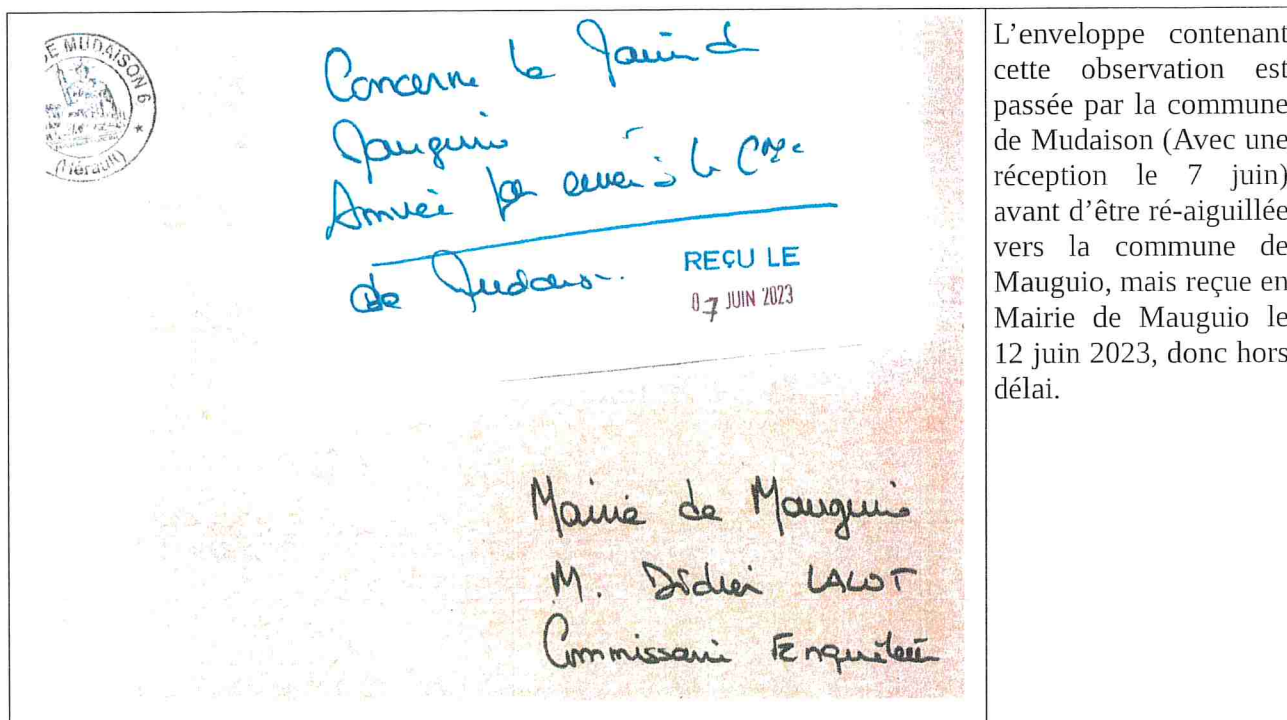 E MUDAISON 6 *
(Hérault)
Concerne la Mairie de
Mauguio
Arrivée par erreur à la Cne
de Mudaison.
REÇU LE
07 JUIN 2023
Mairie de Mauguio
M. Didier LALOT
Commissaire Enquêteur
L’enveloppe contenant
cette observation est
passée par la commune
de Mudaison (Avec une
réception le 7 juin)
avant d’être ré-aiguillée
vers la commune de
Mauguio, mais reçue en
Mairie de Mauguio le
12 juin 2023, donc hors
délai.